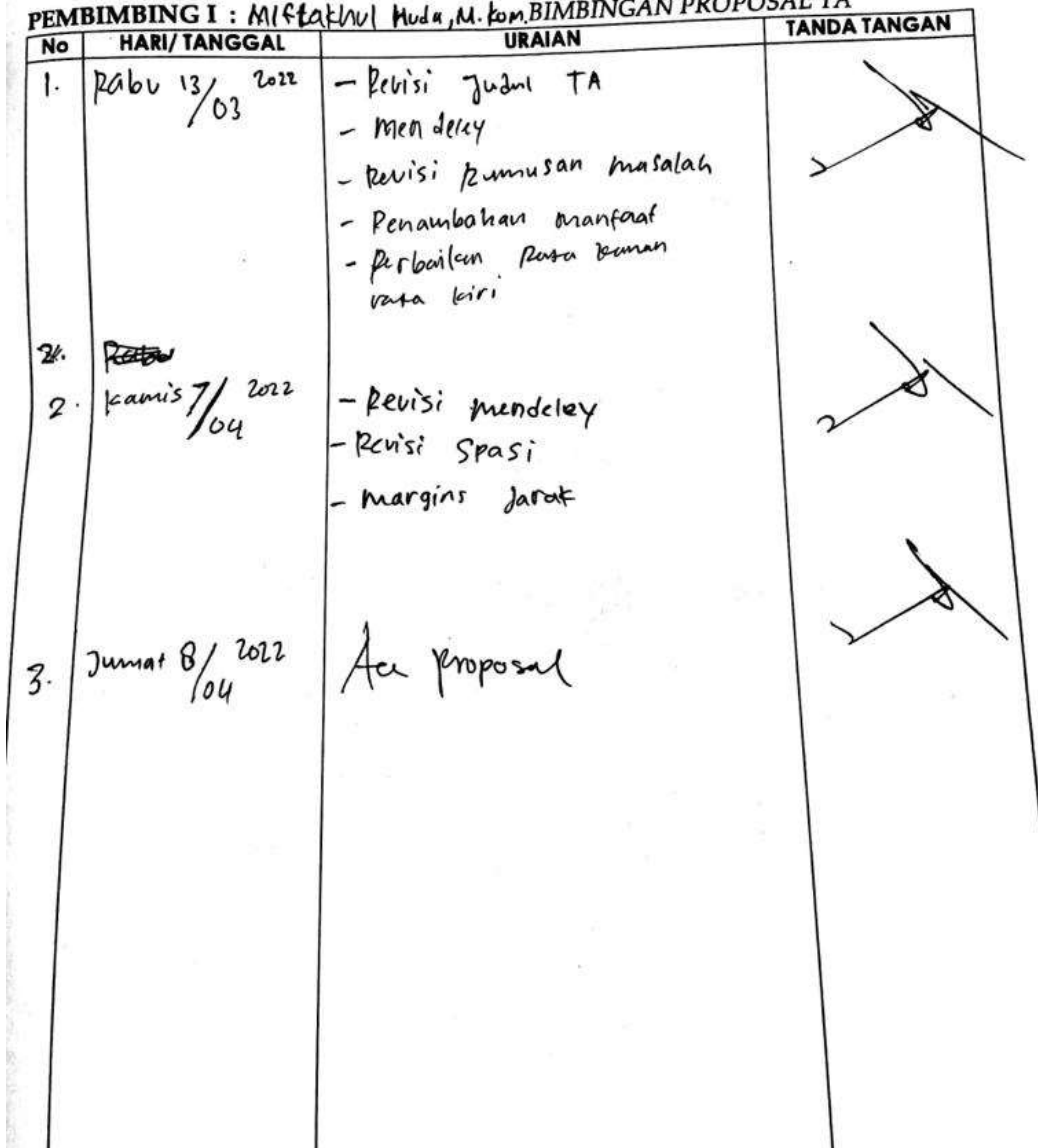 PEMBIMBING I : Miftakhul Huda, M.Kom. BIMBINGAN PROPOSAL TA
No HARI/ TANGGAL URAIAN TANDA TANGAN
1. Rabu 13/03 2022 - Revisi Judul TA
- Mendeley
- Revisi Rumusan masalah
- Penambahan manfaat
- Perbaikan Rata kanan
rata kiri
2.
2. Kamis 7/04 2022 - Revisi mendeley
- Revisi Spasi
- Margins Jarak
3. Jumat 8/04 2022 Acc proposal